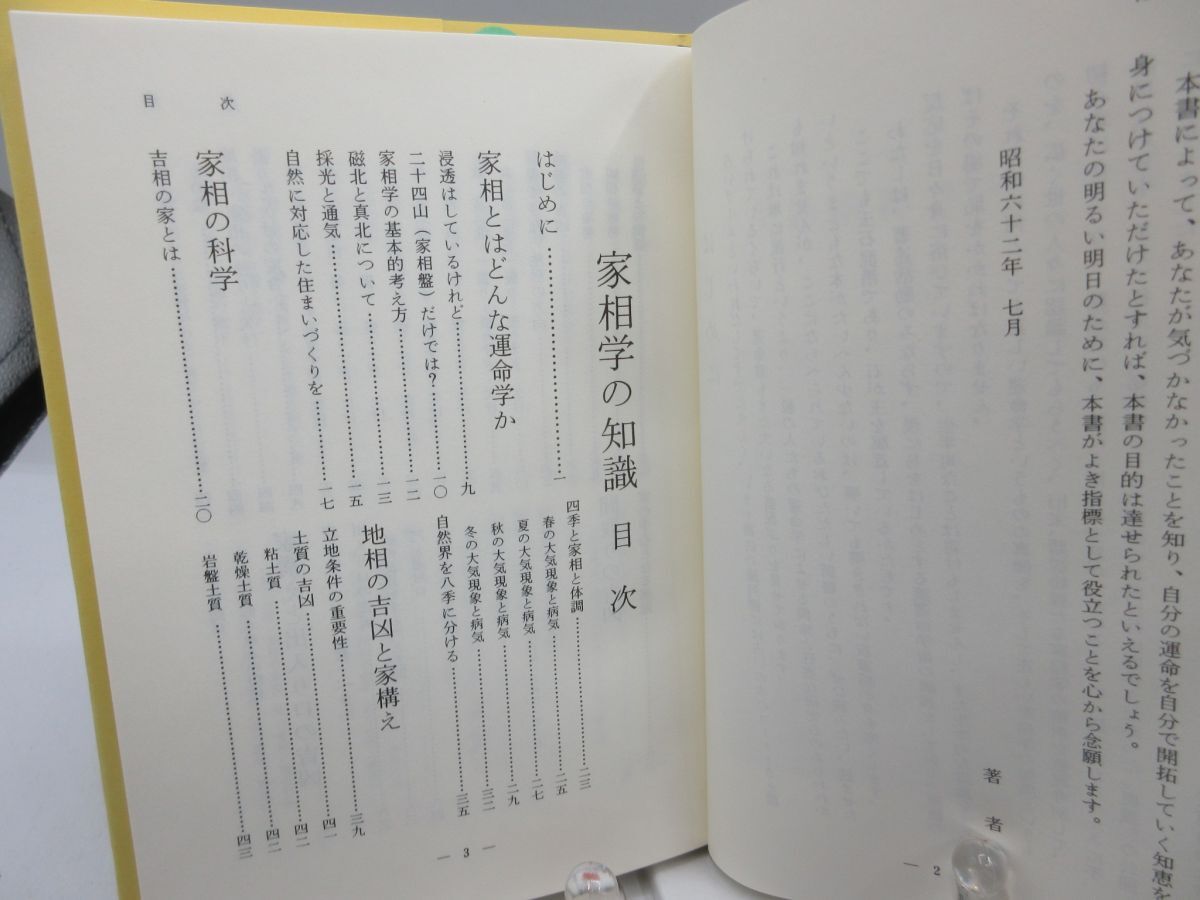 本書によって、あなたが気づかなかったことを知り、自分の運命を自分で開拓していく知恵を
身につけていただけたとすれば、本書の目的は達せられたといえるでしょう。
あなたの明るい明日のために、本書がよき指標として役立つことを心から念願します。
昭和六十二年 七月
著者
— 2 —
家相学の知識 目次
はじめに……………一
家相とはどんな運命学か
浸透はしているけれど……………九
二十四山（家相盤）だけでは？……………一〇
家相学の基本的考え方……………一二
磁北と真北について……………一三
採光と通気……………一五
自然に対応した住まいづくりを……………一七
家相の科学
吉相の家とは……………二〇
四季と家相と体調……………二三
春の大気現象と病気……………二五
夏の大気現象と病気……………二七
秋の大気現象と病気……………二九
冬の大気現象と病気……………三二
自然界を八季に分ける……………三五
地相の吉凶と家構え
立地条件の重要性……………三九
土質の吉凶……………四一
粘土質……………四二
乾燥土質……………四二
岩盤土質……………四三
目次
— 3 —